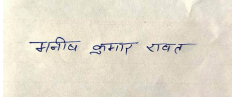 मनीष कुमार रावत